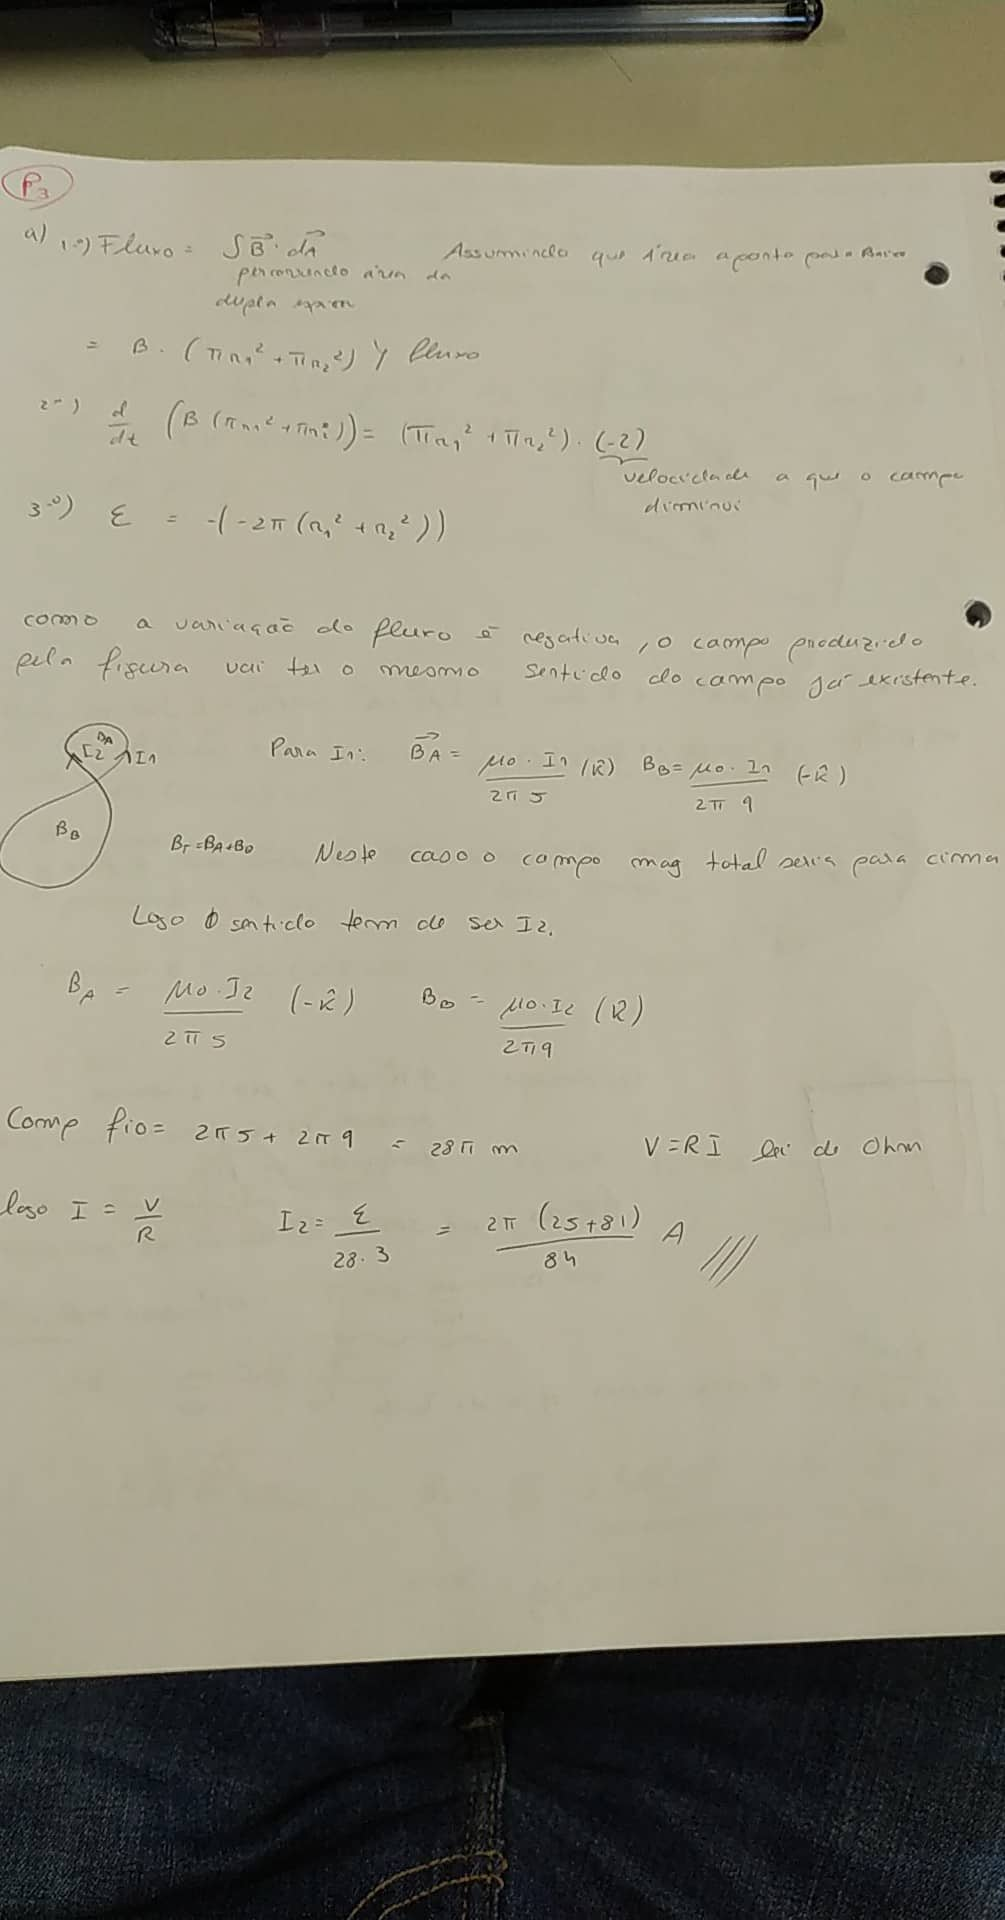 P3
a) 1º) Fluxo = ∫B⃗ · dA⃗ Assumindo que área aponta para Baixo
percorrendo área da
dupla
= B · (πr₁² + πr₂²) } fluxo
2º) d/dt (B (πr₁² + πr₂²)) = (πr₁² + πr₂²) · (-2)
velocidade a que o campo
diminui
3º) ε = -(-2π (r₁² + r₂²))
como a variação do fluxo é negativa, o campo produzido
pela figura vai ter o mesmo sentido do campo já existente.
BA
I2 I1
BB
Para I1: B⃗A = μ0 · I1 / 2π 5 (k̂) BB = μ0 · I1 / 2π 9 (-k̂)
BT = BA + BB Neste caso o campo mag total seria para cima
Logo o sentido tem de ser I2.
BA = μ0 · I2 / 2π 5 (-k̂) BB = μ0 · I2 / 2π 9 (k̂)
Comp fio = 2π 5 + 2π 9 = 28π m V = RI lei de Ohm
logo I = V/R I2 = ε / 28 · 3 = 2π (25+81) / 84 A